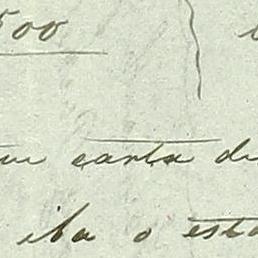 500
carta de
iba o esta